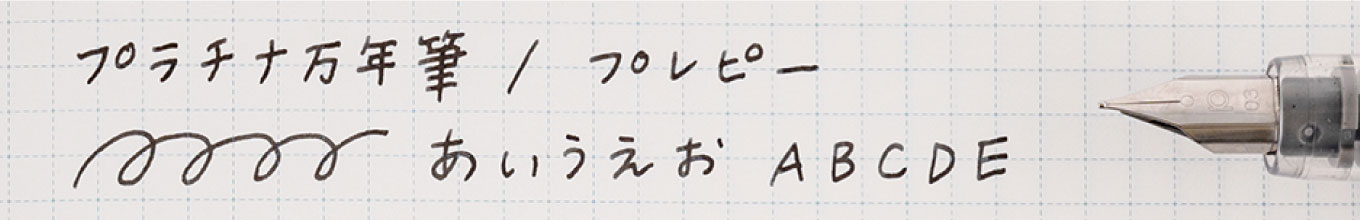 プラチナ万年筆 / プレピー
あいうえお ABCDE
03